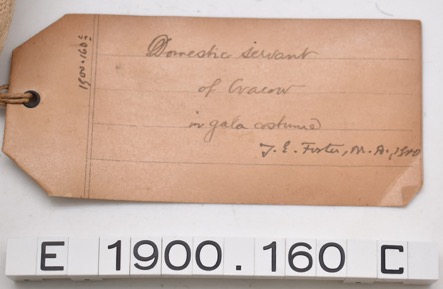 1900.160c
Domestic servant
of Cracow
in gala costume
J. E. Foster, M.A., 1900
E 1900.160 C